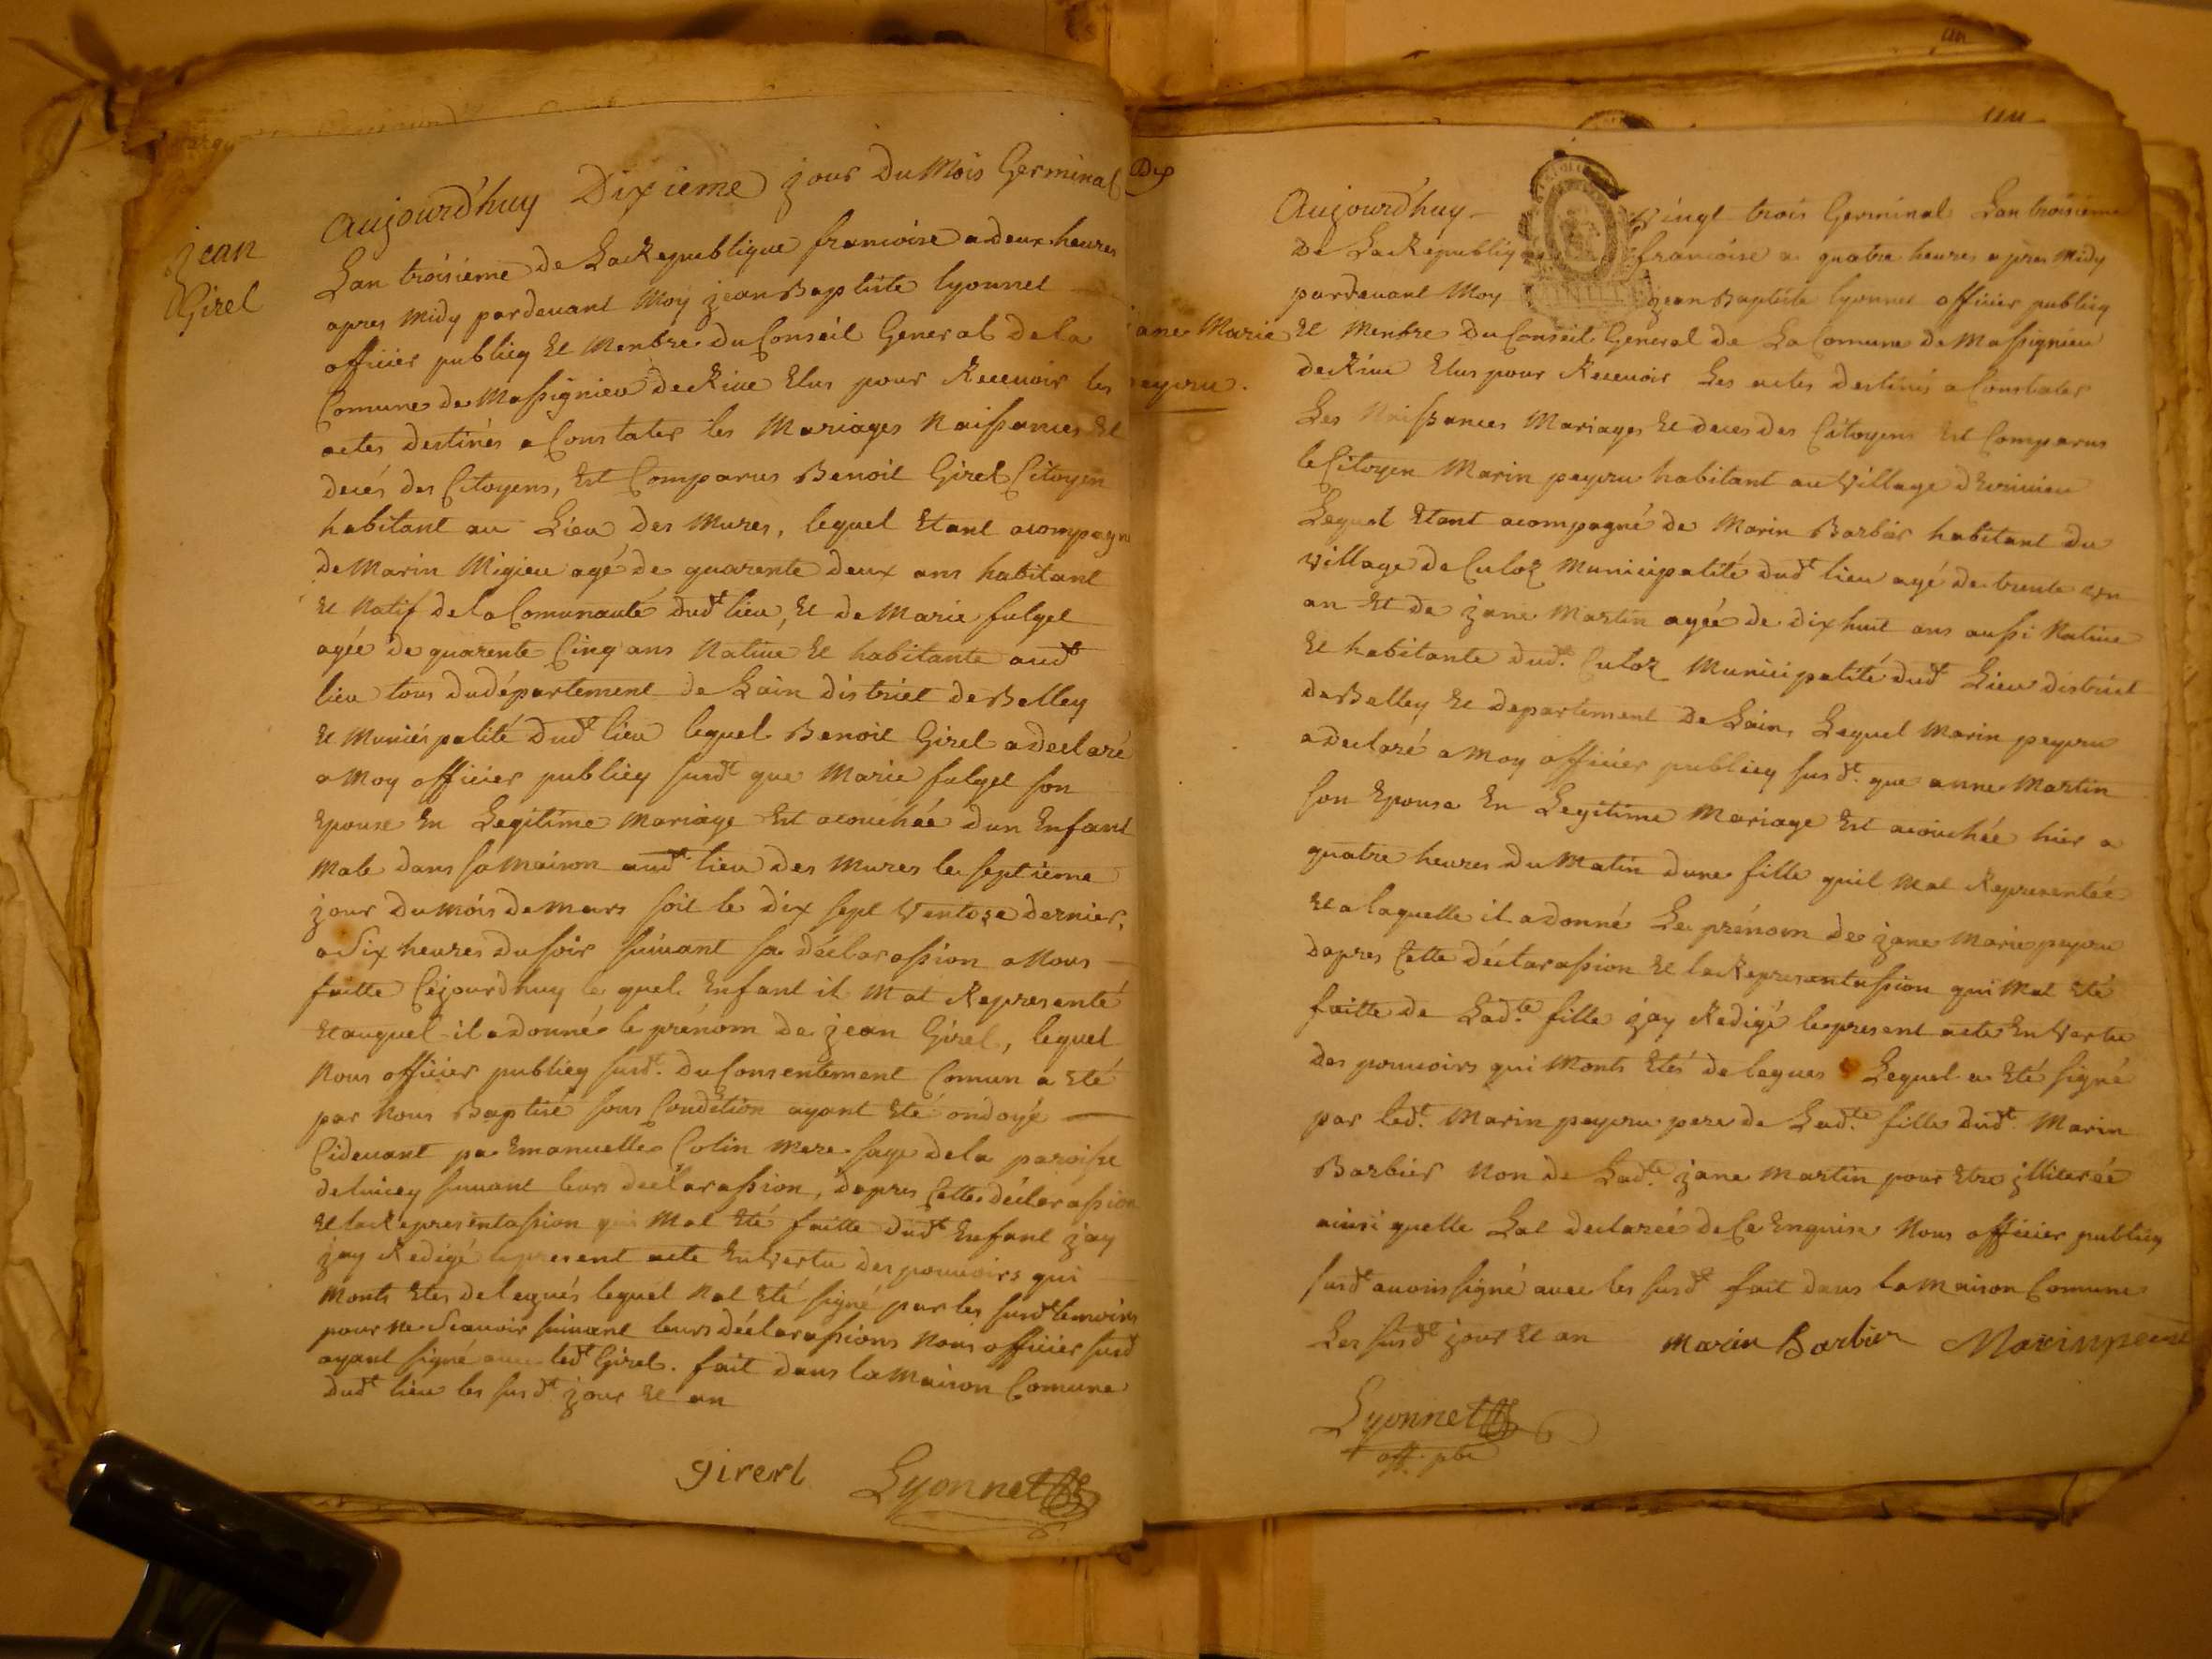 jean
Girel
Aujourd'huy Dixieme jour Du Mois Germinal
Lan troisieme de La Republique francoise a deux heures
apres Midy pardevant Moy jean Baptiste lyonnet
officier publicq Et Menbre Du Conseil General de la
Comune de Massignieu de Rive Elus pour Recevoir les
actes destinés a Constater les Mariages Naissances Et
decés des Citoyens, Est Comparus Benoit Girel Citoyen
habitant au Lieu des Mures, lequel Etant acompagné
de Marin Migieu agé de quarente deux ans habitant
Et Natif de la Comunauté dudt lieu, Et de Marie fulget
agée de quarente Cinq ans Native Et habitante audt
lieu tous du département de Lain district de Belley
Et Municipalité dudt lieu lequel Benoit Girel a declaré
a Moy officier publicq susdt que Marie fulget son
Epouse En Legitime Mariage Est acouchée dun Enfant
Male dans sa Maison audt lieu des Mures le septieme
jour du Mois de Mars soit le dix sept Ventoze dernier,
a Six heures du soir suivant sa déclarassion a Nous
faitte Cejourdhuy le quel Enfant il Mat Representé
Et auquel il a donné le prénom de jean Girel, lequel
Nous officier publicq susdt. du Consentement Comun a Eté
par Nous Baptisé sous Condition ayant Eté ondoyé
Cidevant pa Emanuelle Colin Mere sage de la paroisse
de lucey suivant leurs declarassion, dapres Cette déclarassion
Et la Representassion qui Mat Eté faitte dudt Enfant jay
jay Redigé le present acte En Vertu des pouvoirs qui
Monts Etes delegués lequel Nat Eté signé par les susdt temoins
pour Ne Scavoir suivant leurs déclarassions Nous officier susdt
ayant signé avec ledt Girel. fait dans la Maison Comune
dudt lieu les susdt jour Et an
girerl Lyonnet
jane Marie
peyvru.
Aujourd'huy Vingt trois Germinal Lan troisieme
De La Republiq francoise a quatre heures apres Midy
pardevant Moy jean Baptiste lyonnet officier publicq
Et Menbre Du Conseil General de La Comune de Massignieu
de Rive Elus pour Recevoir Les actes destinés a Constater
Les Naissances Mariages Et deces des Citoyens Est Comparus
le Citoyen Marin peyvru habitant au Village
Lequel Etant acompagné de Marin Barbier habitant du
Village de Culoz Municipalité dudt lieu agé de trente un
an Et de jane Martin agée de dix huit ans aussi Native
Et habitante dudt. Culoz Municipalité dudt Lieu district
de Belley Et departement de Lain, Lequel Marin peyvru
a declaré a Moy officier publicq susdt. que anne Martin
son Epouse En Legitime Mariage Est acouchée hier a
quatre heures du Matin dune fille quil Mat Representée
Et a laquelle il a donné Le prénom de jane Marie peyvru
dapres Cette déclarassion Et la Representassion qui Mat Eté
faitte de Ladte. fille jay Redigé le present acte En Vertu
des pouvoirs qui Monts Etés delegues Lequel a Eté signé
par ledt. Marin peyvru pere de Ladte. fille dudt Marin
Barbier Non de Ladte. jane Martin pour Etre jlliterée
ainsi quelle Lat declarée de Ce Enquise Nous officier publicq
susdt avoins signé avec les susdt fait dans la Maison Comune
Les susdt jour Et an marin Barbier
Lyonnet
off. pbe